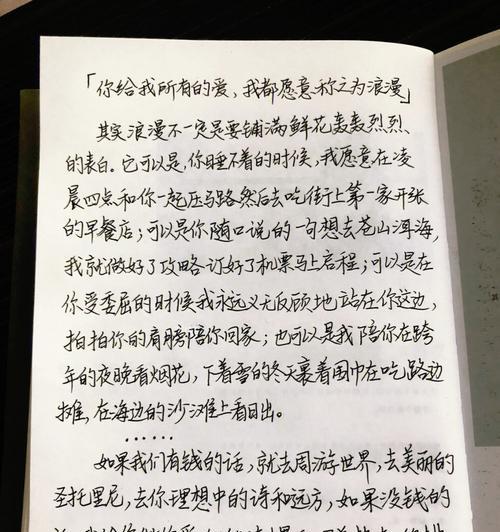 「你给我所有的爱,我都愿意称之为浪漫」
其实浪漫不一定是要铺满鲜花轰轰烈烈
的表白。它可以是,你睡不着的时候,我愿意在凌
晨四点和你一起压马路然后去吃街上第一家开张
的早餐店;可以是你随口说的一句想去苍山洱海,
我就做好了攻略订好了机票马上启程;可以是在
你受委屈的时候我永远义无反顾地站在你这边,
拍拍你的肩膀陪你回家;也可以是我陪你在跨
年的夜晚看烟花,下着雪的冬天裹着围巾在吃路边
摊,在海边的沙滩上看日出。
……
如果我们有钱的话,就去周游世界,去美丽的
圣托里尼,去你理想中的诗和远方,如果没钱的